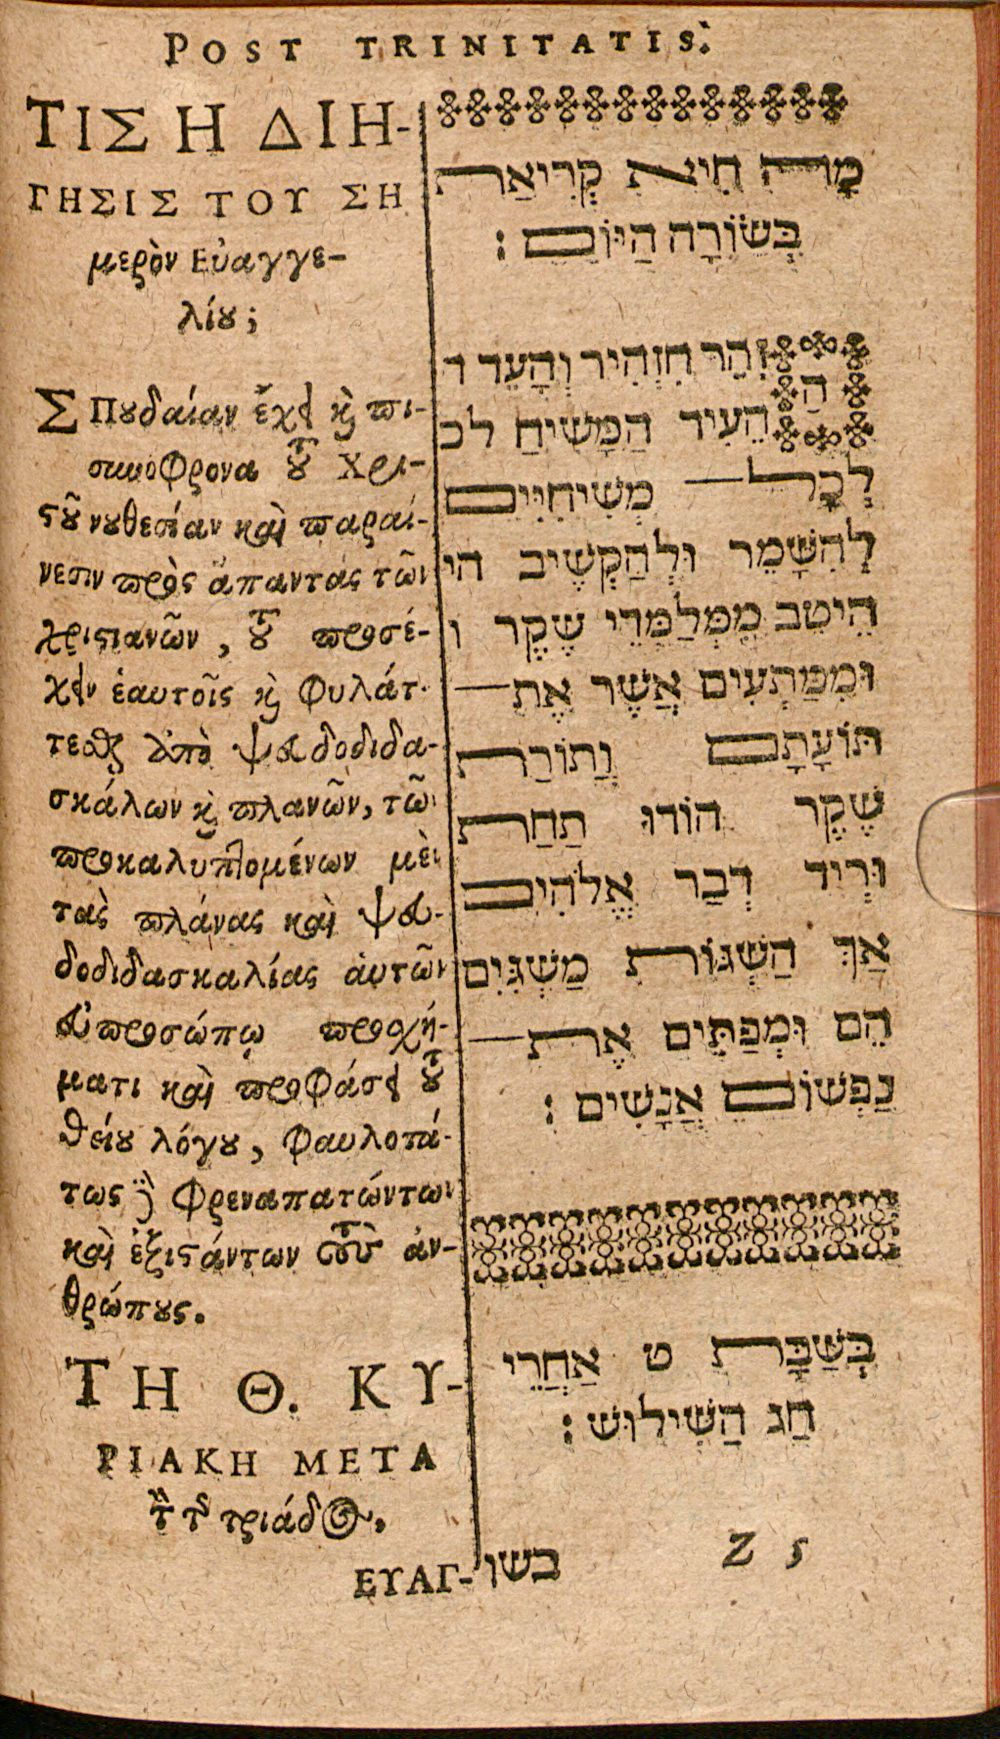 POST TRINITATIS.
ΤΙΣ Η ΔΙΗ-
ΓΗΣΙΣ ΤΟΥ ΣΗ
μερὸν Εὐαγγε-
λίου;
ΣΠουδαίαν ἔχει καὶ πι-
συνοφρονα τοῦ Χρι-
στοῦ νουθεσίαν καὶ παραί-
νεσιν πρὸς ἅπαντας τῶν
χριστιανῶν, τοῦ προσέ-
χειν ἑαυτοῖς καὶ φυλάτ-
τεσθαι ἀπὸ ψευδοδιδα-
σκάλων καὶ πλανῶν, τῶν
προκαλυπτομένων μὲν
τὰς πλάνας καὶ ψευ-
δοδιδασκαλίας ἀυτῶν
εὐπροσώπῳ προσχή-
ματι καὶ προφάσει τοῦ
θείου λόγου, φαυλοτά-
τως δὲ φρεναπατώντων
καὶ ἐξιστάντων τοὺς ἀν-
θρώπους.
ΤΗ Θ. ΚΥ-
ΡΙΑΚΗ ΜΕΤΑ
τὴν τῆς τριάδος.
ΕΥΑΓ-
מָה הִיא קְרִיאַת
בְּשׂוֹרָה הַיּוֹם :
הַזְהֵר הִזְהִיר וְהָעֵד ה
הֵעִיד הַמָּשִׁיחַ לכ
לְכָל מְשִׁיחִיִּים
לְהִשָּׁמֵר וּלְהַקְשִׁיב הי
הֵיטִב מִמְּלַמְּדֵי שֶׁקֶר ו
וּמִמַּתְעִים אֲשֶׁר אֶת
תּוֹעָתָם וְתוֹרַת
שֶׁקֶר הוֹדוּ תַּחַת
דְבַר אֱלֹהִים
אַךְ הַשְׁגּוֹת מַשְׁגִּים
הֵם וּמְפַתִּים אֶת
נַפְשׁוֹם אֲנָשִׁים :
בְּשַׁבָּת ט אַחֲרֵי
חַג הַשִּׁילוּשׁ :
בשו
Z 5